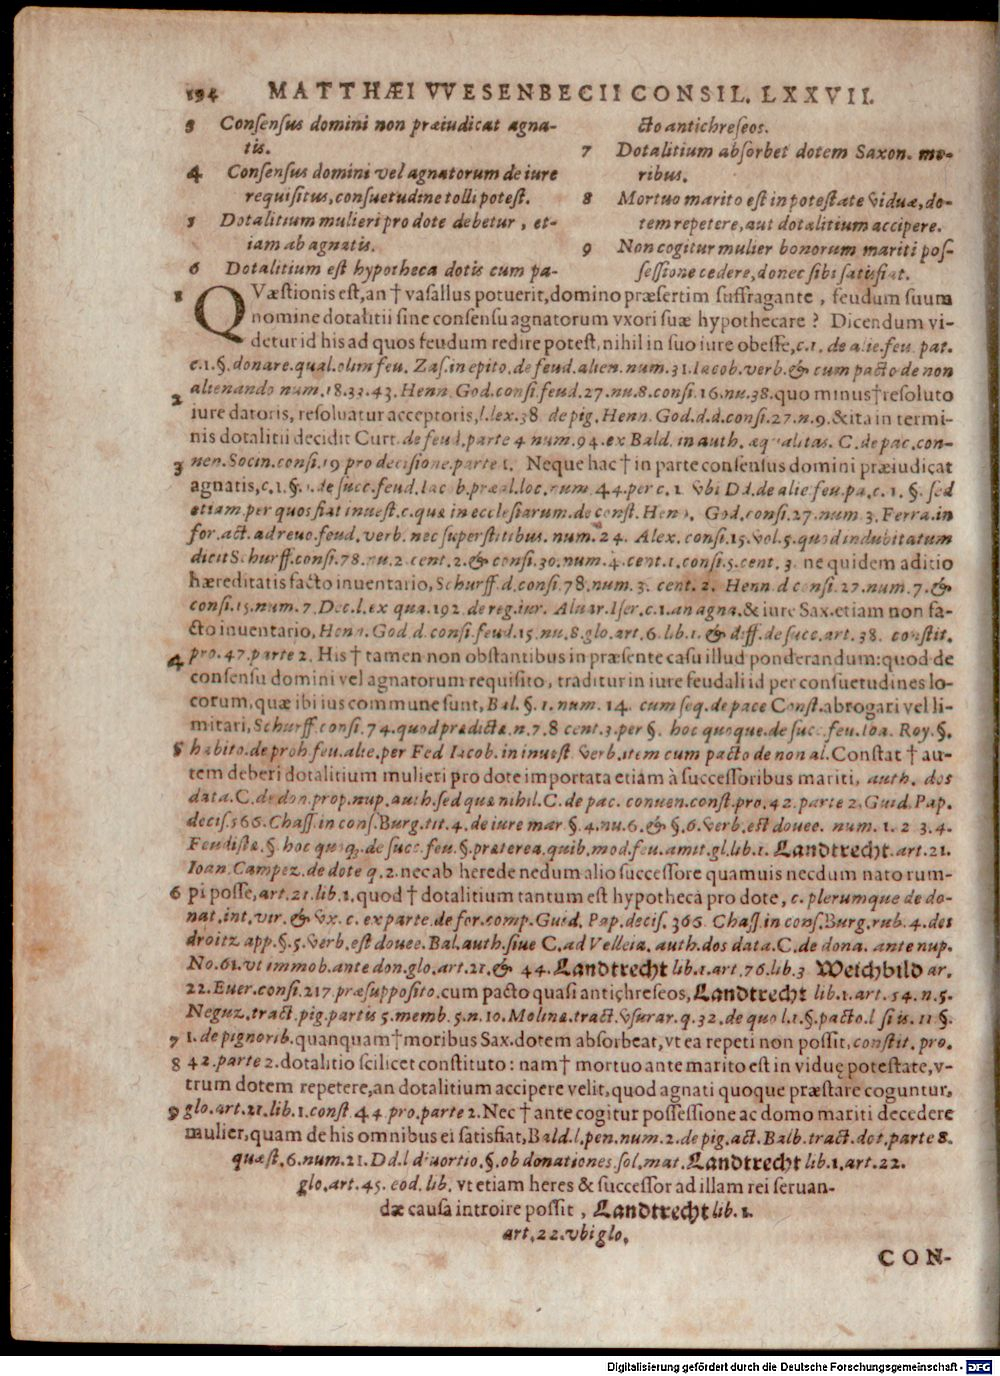 194 MATTHÆI VVESENBECII CONSIL. LXXVII.
3 Consensus domini non præiudicat agna-
tis.
4 Consensus domini vel agnatorum de iure
requisitus, consuetudine tolli potest.
5 Dotalitium mulieri pro dote debetur, et-
iam ab agnatis.
6 Dotalitium est hypotheca dotis cum pa-
cto antichreseos.
7 Dotalitium absorbet dotem Saxon. mo-
ribus.
8 Mortuo marito est in potestate viduæ, do-
tem repetere, aut dotalitium accipere.
9 Non cogitur mulier bonorum mariti pos-
sessione cedere, donec sibi satisfiat.
1 QVæstionis est, an † vasallus potuerit, domino præsertim suffragante, feudum suum
nomine dotalitii sine consensu agnatorum vxori suæ hypothecare? Dicendum vi-
detur id his ad quos feudum redire potest, nihil in suo iure obesse, c. 1. de alie. feu. pat.
c. 1. §. donare. qual. olim feu. Zas. in epito. de feud. alien. num. 31. Iacob. verb. & cum pacto de non
alienando num. 18. 33. 43. Henn. God. consi. feud. 27. nu. 8. consi. 16. nu. 38. quo minus † resoluto
2 iure datoris, resoluatur acceptoris, l. lex. 38. de pig. Henn. God. d. d. consi. 27. n. 9. & ita in termi-
nis dotalitii decidit Curt. de feud. parte 4 num. 94. ex Bald. in auth. æqualitas. C. de pac. con-
3 nen. Socin. consi. 19 pro decisione. parte 1. Neque hac † in parte consensus domini præiudicat
agnatis, c. 1. §. de succ. feud. Iacob. præal. loc. num. 44. per c. 1. vbi Dd. de alie feu. pa. c. 1. §. sed
etiam. per quos fiat inuest. c. quæ in ecclesiarum. de const. Henn. God. consi. 27. num. 3. Ferra. in
for. act. ad reuo. feud. verb. nec superstitibus. num. 24. Alex. consi. 15. vol. 5. quod indubitatum
dicit Schurff. consi. 78. nu. 2. cent. 2. & consi. 30. num. 4. cent. 1. consi. 5. cent. 3. ne quidem aditio
hæreditatis facto inuentario, Schurff. d. consi. 78. num. 3. cent. 2. Henn. d consi. 27. num. 7. &
consi. 15. num. 7. Dec. l. ex qua. 192. de reg. iur. Aluar. Iser. c. 1. an agna. & iure Sax. etiam non fa-
cto inuentario, Henn. God. d. consi. feud. 15. nu. 8. glo. art. 6. lib. 1. & diff. de succ. art. 38. constit.
4 pro. 47. parte 2. His † tamen non obstantibus in præsente casu illud ponderandum: quod de
consensu domini vel agnatorum requisito, traditur in iure feudali id per consuetudines lo-
corum, quæ ibi ius commune sunt, Bal. §. 1. num. 14. cum seq. de pace Const. abrogari vel li-
mitari, Schurff. consi. 74. quod predicta. n. 7. 8 cent. 3. per §. hoc quoque. de succ. feu. Ioa. Roy. §.
5 habito. de proh. feu. alie. per Fed Iacob. in inuest. verb. item cum pacto de non al. Constat † au-
tem deberi dotalitium mulieri pro dote importata etiam à successoribus mariti, auth. dos
data. C. de don. prop. nup. auth. sed quæ nihil. C. de pac. conuen. const. pro. 42. parte 2. Guid. Pap.
decis. 366. Chass. in cons. Burg. tit. 4. de iure mar. §. 4. nu. 6. & §. 6. verb. est douee. num. 1. 2 3. 4.
Feudistæ. §. hoc quoq₃. de succ. feu. §. præterea. quib. mod. feu. amit. gl. lib. 1. Landtrecht. art. 21.
Ioan. Campez. de dote q. 2. nec ab herede nedum alio successore quamuis necdum nato rum-
6 pi posse, art. 21. lib. 1. quod † dotalitium tantum est hypotheca pro dote, c. plerumque de do-
nat. int. vir. & vx. c. ex parte. de for. comp. Guid. Pap. decis. 366. Chass. in cons. Burg. rub. 4. des
droitz app. §. 5. verb. est douee. Bal. auth. siue C. ad Velleia. auth. dos data. C. de dona. ante nup.
No. 61. vt immob. ante don. glo. art. 21. & 44. Landtrecht lib. 1. art. 76. lib. 3 Weichbild ar.
22. Euer. consi. 217. præsupposito. cum pacto quasi antichreseos, Landtrecht lib. 1. art. 54. n. 5.
Neguz. tract. pig. partis 5. memb. 5. n. 10. Molinæ. tract. vsurar. q. 32. de quo l. 1. §. pacto. l si is. 11 §.
7 1. de pignorib. quanquam † moribus Sax. dotem absorbeat, vt ea repeti non possit, constit. pro.
8 42. parte 2. dotalitio scilicet constituto: nam † mortuo ante marito est in viduę potestate, v-
trum dotem repetere, an dotalitium accipere velit, quod agnati quoque præstare coguntur,
9 glo. art. 21. lib. 1. const. 44. pro. parte 2. Nec † ante cogitur possessione ac domo mariti decedere
mulier, quam de his omnibus ei satisfiat, Bald. l. pen. num. 2. de pig. act. Balb. tract. dot. parte 8.
quæst. 6. num. 21. Dd. l diuortio. §. ob donationes. sol. mat. Landtrecht lib. 1. art. 22.
glo. art. 45. eod. lib. vt etiam heres & successor ad illam rei seruan-
dæ causa introire possit, Landtrecht lib. 1.
art. 22. vbi glo.
CON-
Digitalisierung gefördert durch die Deutsche Forschungsgemeinschaft - DFG